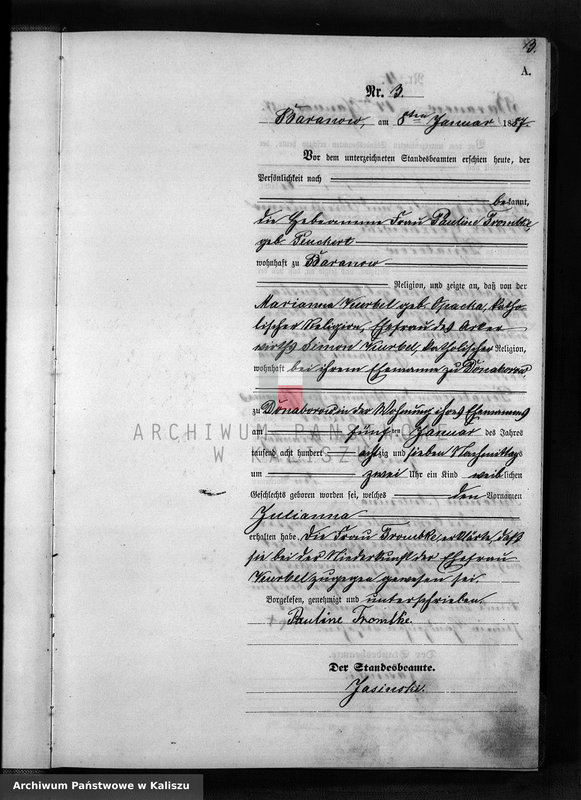 3.
A.
Nr. 3.
Baranow, am 8ten Januar 1887
Vor dem unterzeichneten Standesbeamten erschien heute, der
Persönlichkeit nach
bekannt,
die Hebeamme Frau Pauline Trombke
geb. Teuchert
wohnhaft zu Baranow
Religion, und zeigte an, daß von der
Marianna Kurbel geb. Opacka, katho-
lischer Religion, Ehefrau des Acker
wirths Simon Kurbel, katholischer Religion,
wohnhaft bei ihrem Ehemanne zu Donaborow
zu Donaborow in der Wohnung ihres Ehemannes
am fünften Januar des Jahres
tausend acht hundert achtzig und sieben Nachmittags
um zwei Uhr ein Kind weiblichen
Geschlechts geboren worden sei, welches den Vornamen
Julianna
erhalten habe. Die Frau Trombke erklärte, daß
sie bei der Niederkunft der Ehefrau
Kurbel zugegen gewesen sei.
Vorgelesen, genehmigt und unterschrieben
Pauline Tromke.
Der Standesbeamte.
Jasinski.
ARCHIWUM PAŃSTWOWE
W KALISZU
Archiwum Państwowe w Kaliszu